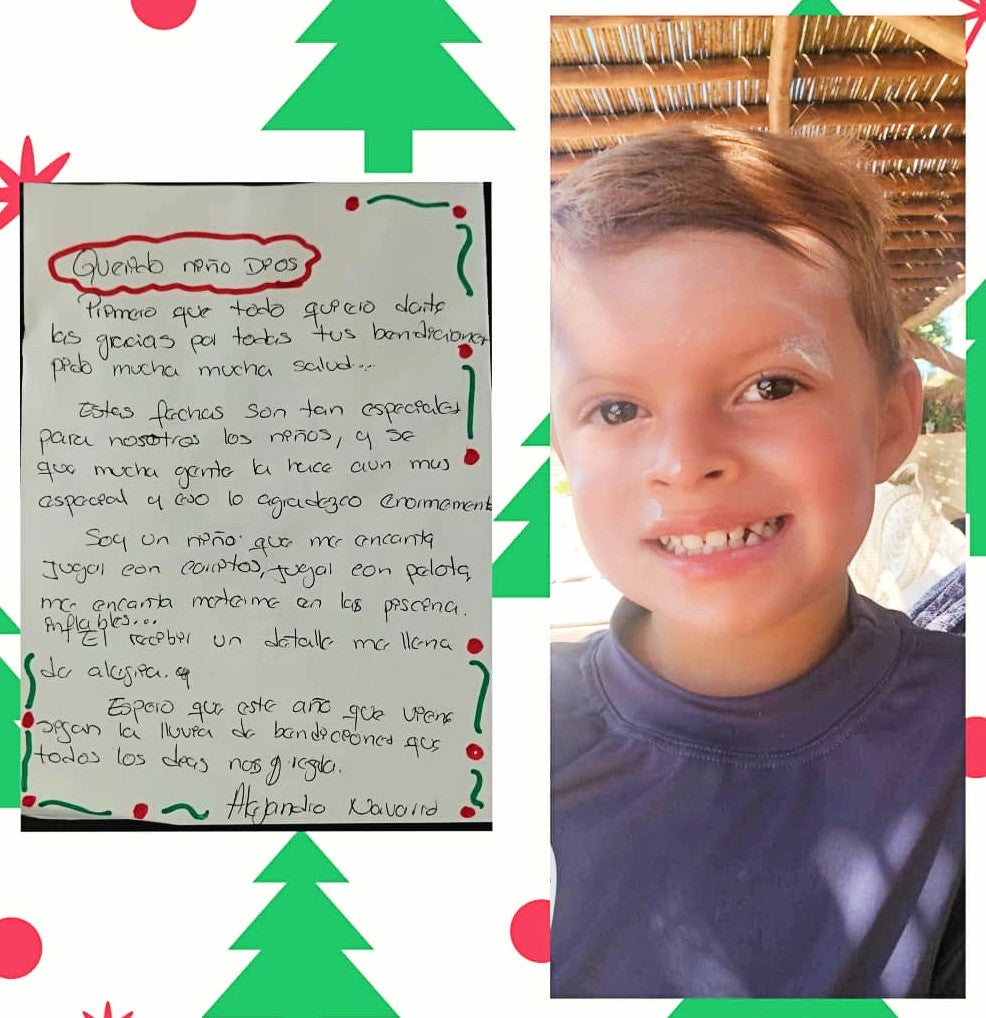 Querido niño Dios
Primero que todo quiero darte
las gracias por todas tus bendiciones
pido mucha mucha salud...
Estas fechas son tan especiales
para nosotros los niños, y se
que mucha gente la hace aun mas
especial y eso lo agradezco enormement
Soy un niño que me encanta
Jugar con carritos, jugar con pelota,
me encanta meterme en las piscina.
inflables...
El recibir un detalle me llena
de alegria.
Espero que este año que viene
sigan la lluvia de bendiciones que
todos los dias nos regala.
Alejandro Navarro